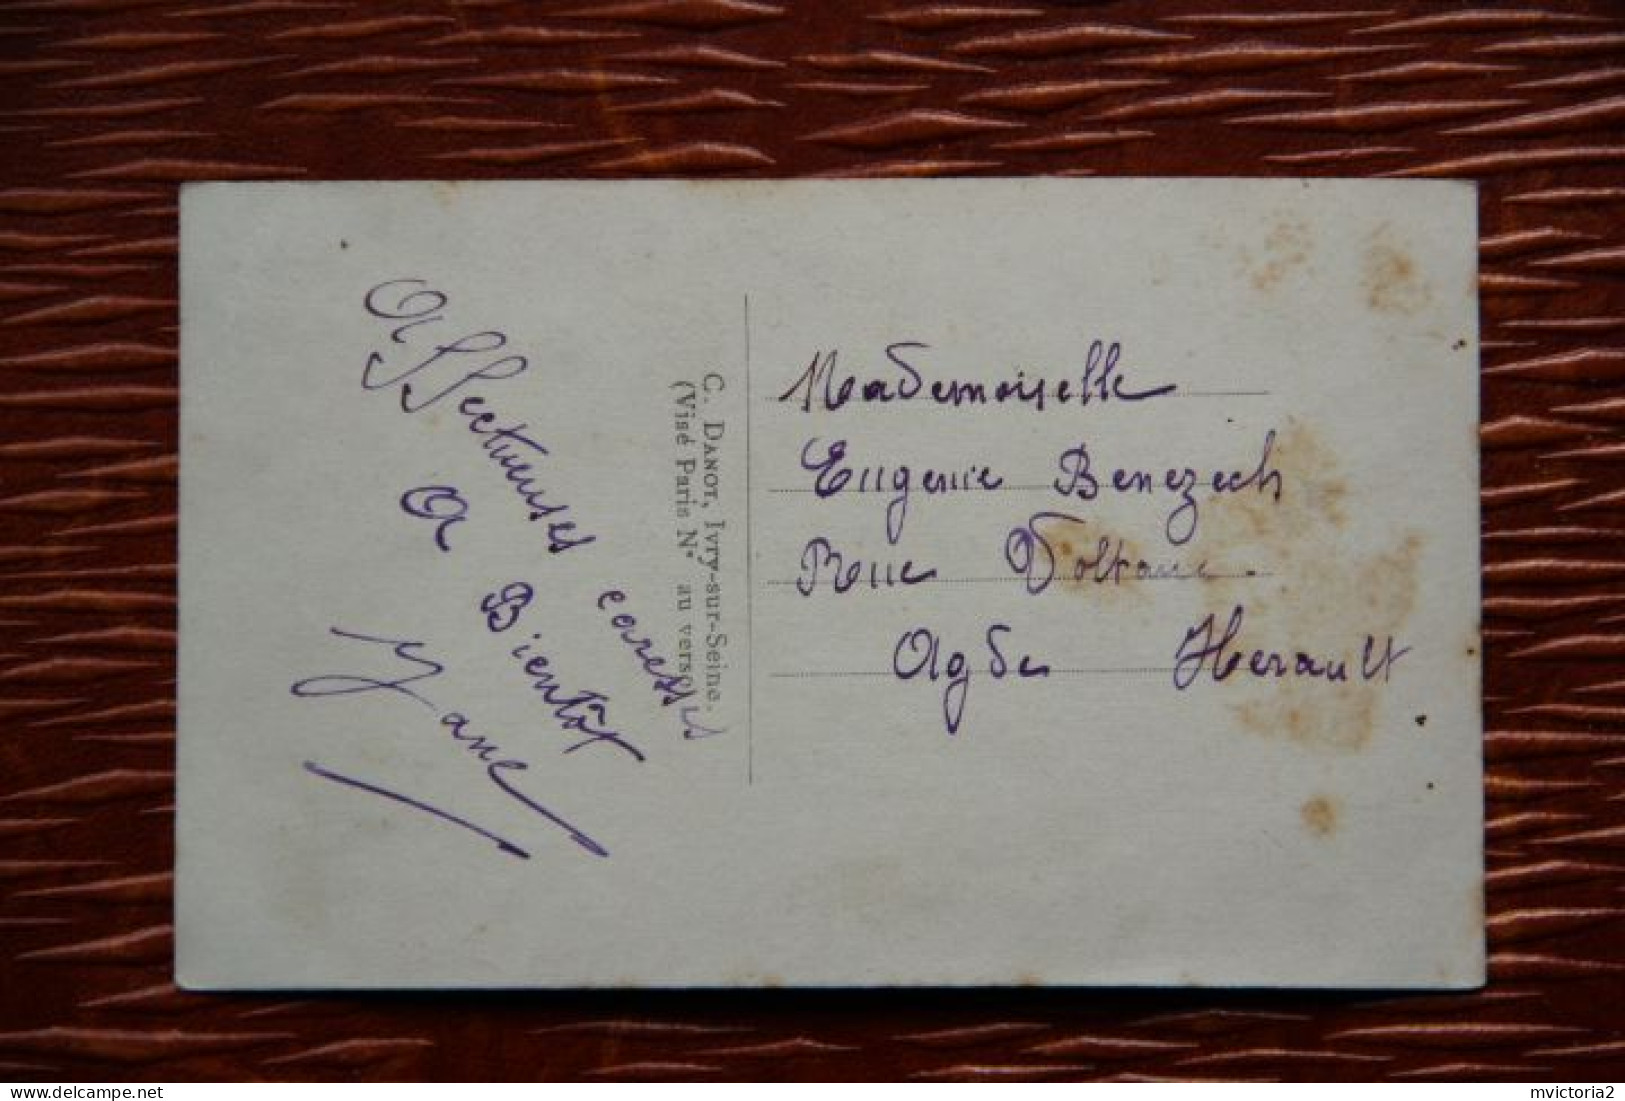 Affectueuses caresses
A Bientôt
Jane
C. DANOT, Ivry-sur-Seine.
(Visé Paris N° au verso)
Mademoiselle
Eugenie Benezech
Rue Voltaire
Agde Herault
delcampe.net
mvictoria2